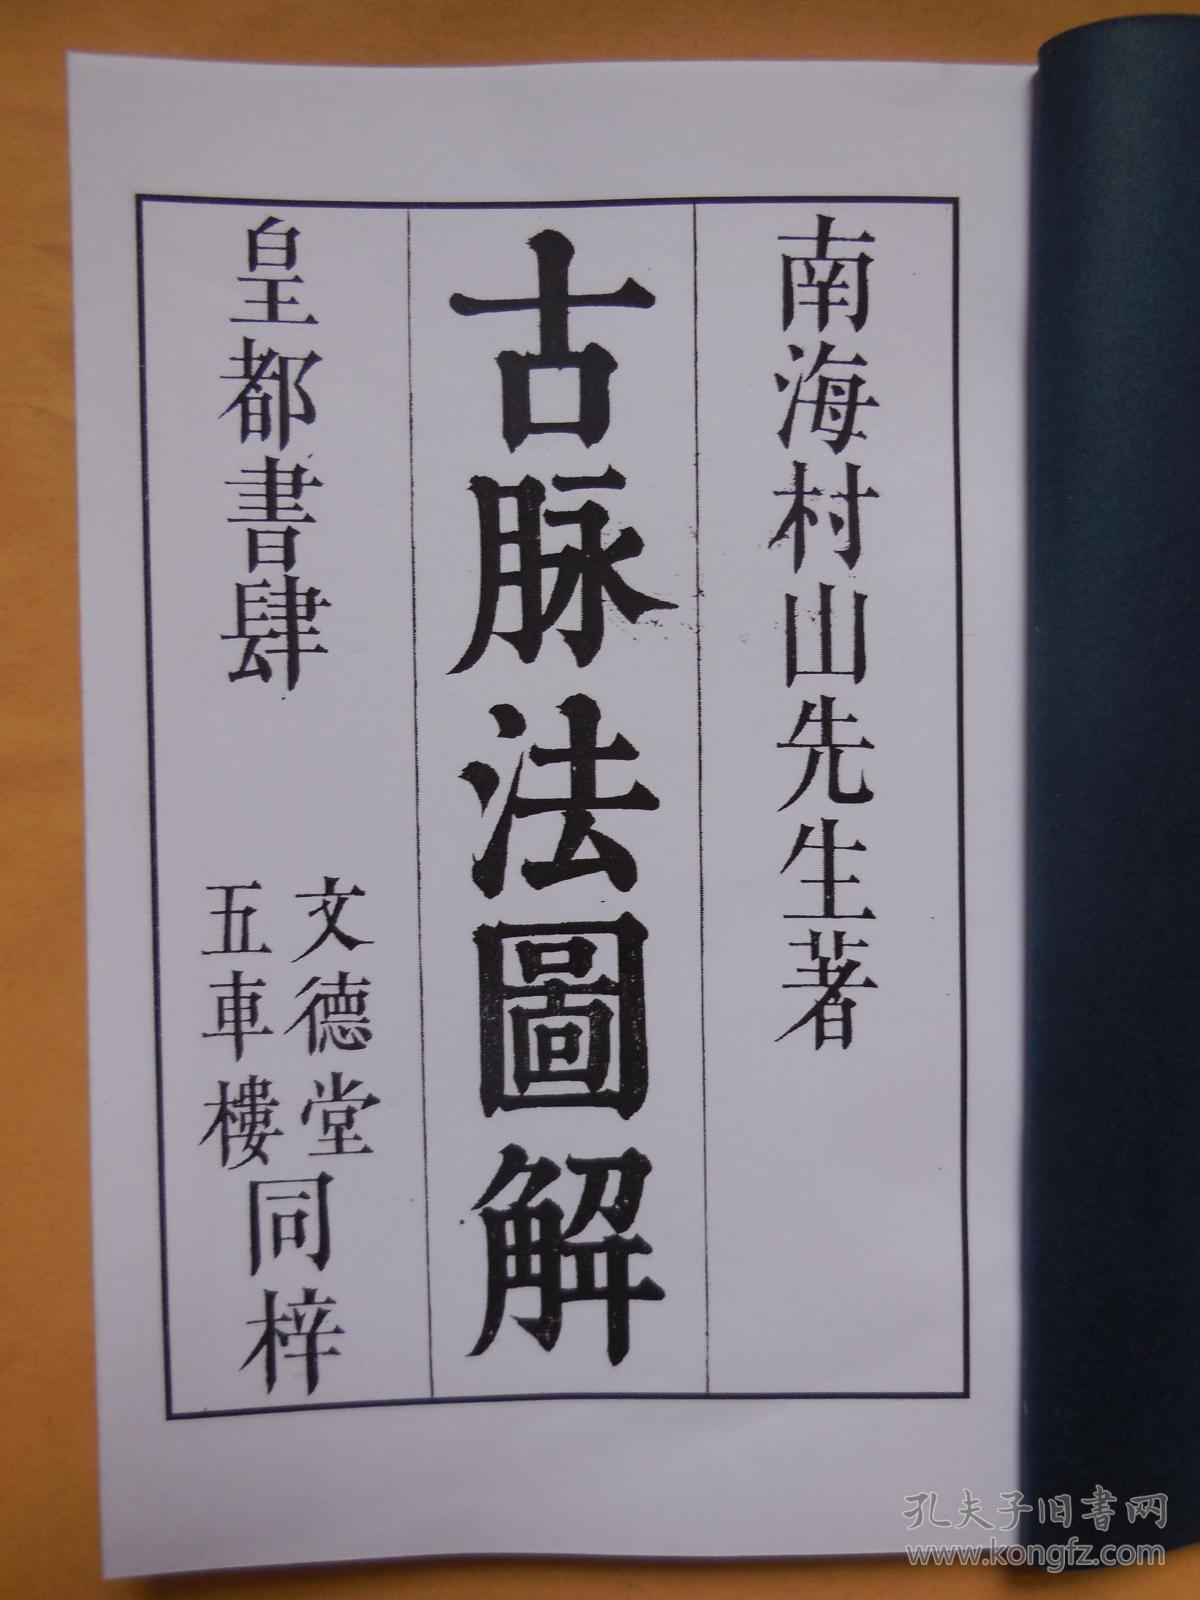 南海村山先生著
古脉法圖解
皇都書肆
文德堂
五車樓
同梓
孔夫子旧書网
www.kongfz.com